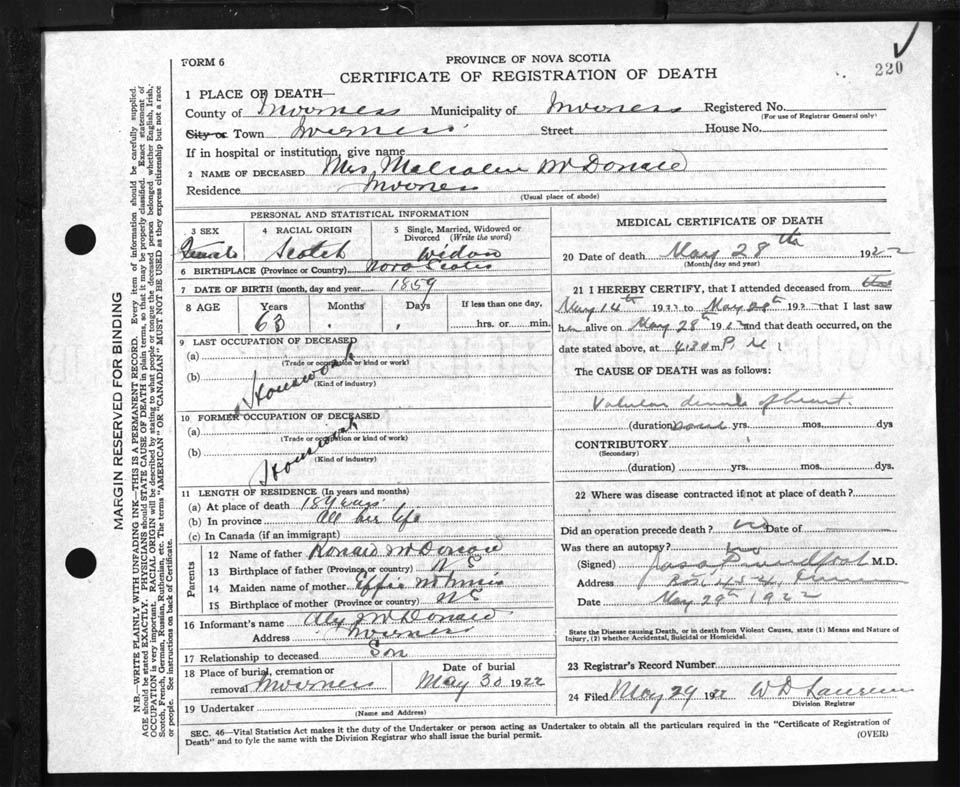 FORM 6
PROVINCE OF NOVA SCOTIA
CERTIFICATE OF REGISTRATION OF DEATH
220
1 PLACE OF DEATH—
County of Inverness Municipality of Inverness Registered No.
(For use of Registrar General only)
City or Town Inverness Street House No.
If in hospital or institution, give name
2 NAME OF DECEASED Mrs Malcolm McDonald
Residence Inverness
(Usual place of abode)
PERSONAL AND STATISTICAL INFORMATION
3 SEX 4 RACIAL ORIGIN 5 Single, Married, Widowed or Divorced (Write the word)
Female Scotch Widow
6 BIRTHPLACE (Province or Country) Nova Scotia
7 DATE OF BIRTH (month, day and year) 1859
8 AGE Years Months Days If less than one day,
63 hrs. or min.
9 LAST OCCUPATION OF DECEASED
(a)
(Trade or occupation or kind of work)
(b) Housework
(Kind of industry)
10 FORMER OCCUPATION OF DECEASED
(a)
(Trade or occupation or kind of work)
(b) Housework
(Kind of industry)
11 LENGTH OF RESIDENCE (In years and months)
(a) At place of death 18 years
(b) In province All her life
(c) In Canada (if an immigrant)
PARENTS
12 Name of father Ronald McDonald
13 Birthplace of father (Province or country) N S
14 Maiden name of mother Effie McInnis
15 Birthplace of mother (Province or country) N S
16 Informant's name Alex McDonald
Address Inverness
17 Relationship to deceased Son
18 Place of burial, cremation or Date of burial
removal Inverness May 30 1922
19 Undertaker
(Name and Address)
MEDICAL CERTIFICATE OF DEATH
20 Date of death May 28th 1922
(Month, day and year)
21 I HEREBY CERTIFY, that I attended deceased from
May 14th 1922 to May 28th 1922 that I last saw
her alive on May 28th 1922 and that death occurred, on the
date stated above, at 4.30 m P.M.
The CAUSE OF DEATH was as follows:
Valvular disease of heart
(duration) yrs. mos. dys
CONTRIBUTORY
(Secondary)
(duration) yrs. mos. dys.
22 Where was disease contracted if not at place of death?
Did an operation precede death? no Date of
Was there an autopsy? no
(Signed) M.D.
Address
Date May 29th 1922
State the Disease causing Death, or in death from Violent Causes, state (1) Means and Nature of
Injury, (2) whether Accidental, Suicidal or Homicidal.
23 Registrar's Record Number
24 Filed May 29 1922 W D
Division Registrar
SEC. 46—Vital Statistics Act makes it the duty of the Undertaker or person acting as Undertaker to obtain all the particulars required in the "Certificate of Registration of
Death" and to fyle the same with the Division Registrar who shall issue the burial permit. (OVER)
MARGIN RESERVED FOR BINDING
N.B.—WRITE PLAINLY WITH UNFADING INK—THIS IS A PERMANENT RECORD. Every item of information should be carefully supplied.
AGE should be stated EXACTLY. PHYSICIANS should STATE CAUSE OF DEATH in plain terms, so that it may be properly classified. Exact statement of
OCCUPATION is very important. RACIAL ORIGIN will be described by stating to what people or tongue the deceased person belonged whether English, Irish,
Scotch, French, German, Russian, Ruthenian, etc. The terms "AMERICAN" OR "CANADIAN" MUST NOT BE USED as they express citizenship but not a race
or people. See instructions on back of Certificate.